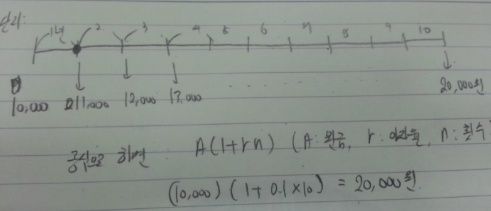 단리:
1년 2 3 4 5 6 7 8 9 10
10,000 11,000 12,000 13,000 ...... 20,000원
공식으로 하면 A(1+rn) (A: 원금, r: 이자율, n: 횟수
(10,000) (1 + 0.1×10) = 20,000원.